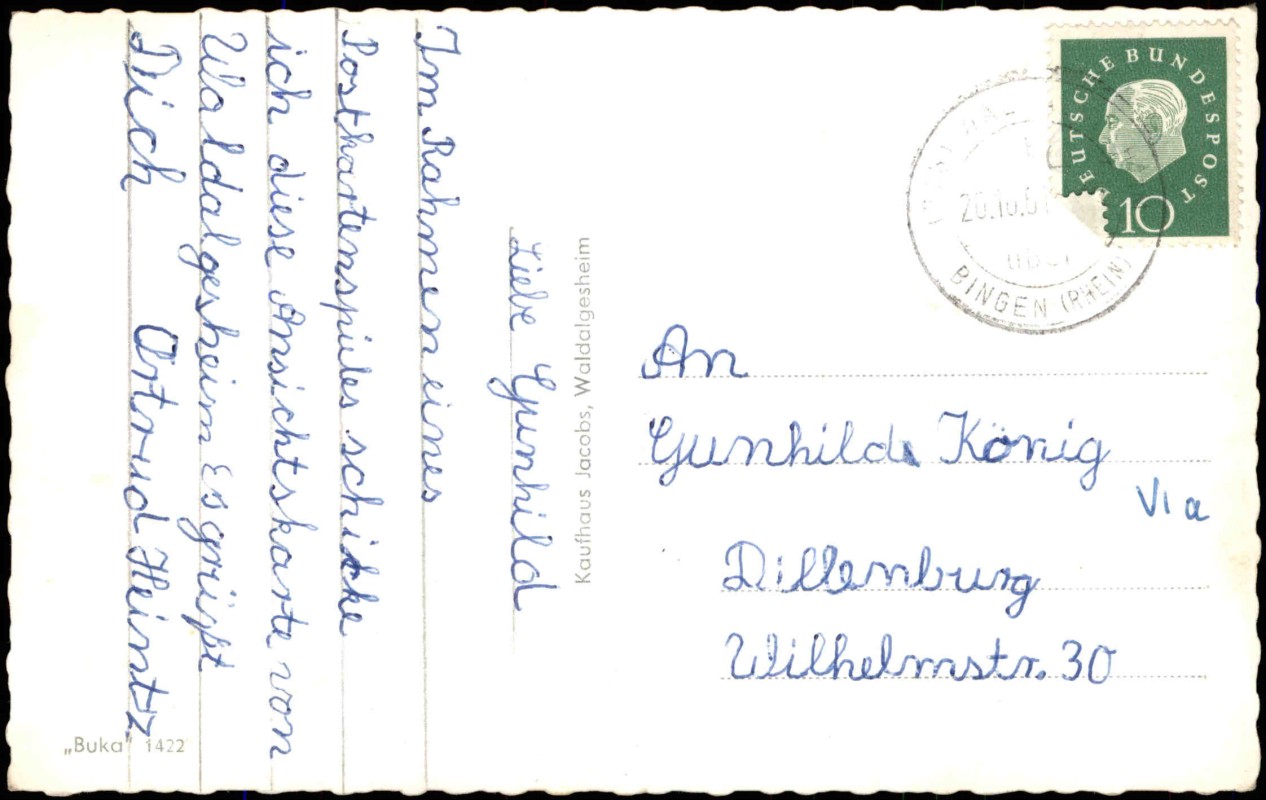 Liebe Gunhild
Im Rahmen eines
Postkartenspieles schicke
ich diese Ansichtskarte von
Waldalgesheim Es grüßt
Dich Ortrud Heintz
Kaufhaus Jacobs, Waldalgesheim
„Buka" 1422
DEUTSCHE BUNDESPOST
10
20.10.61
über
BINGEN (RHEIN)
An
Gunhild König
VI a
Dillenburg
Wilhelmstr. 30